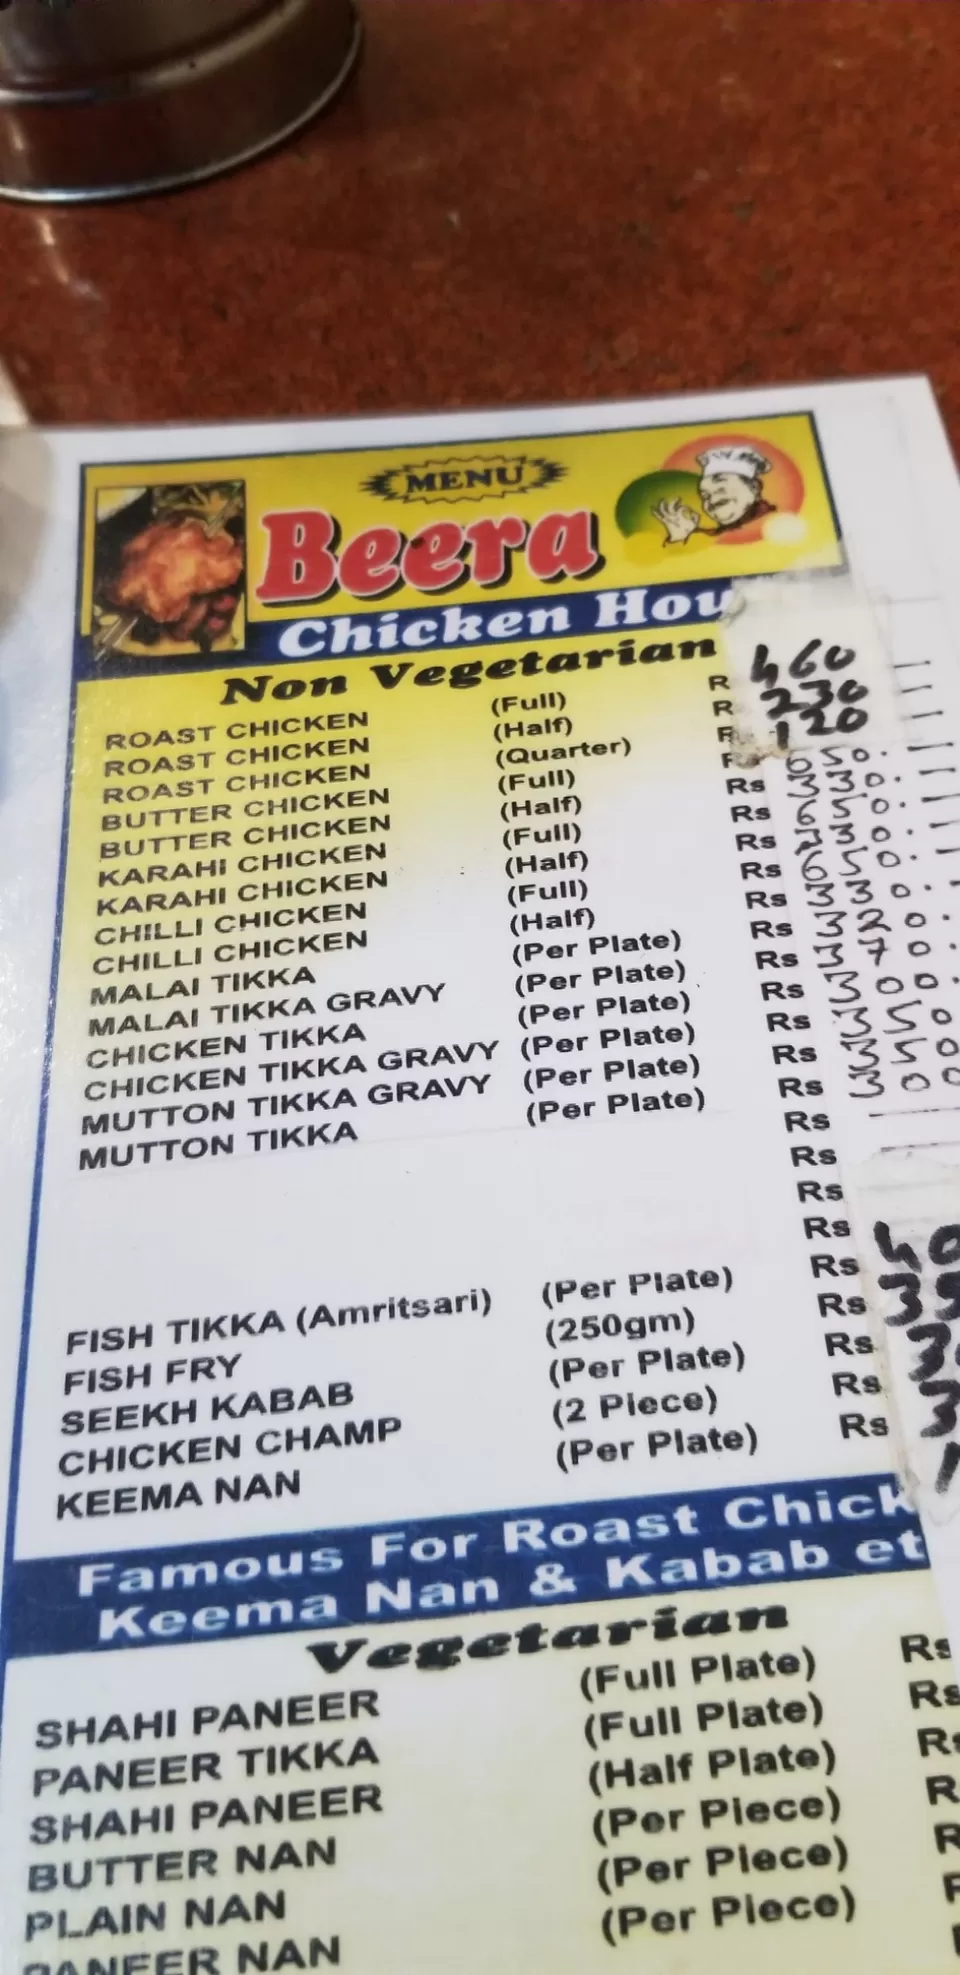 MENU
Beera
Chicken Hou
Non Vegetarian
ROAST CHICKEN (Full) R 460
ROAST CHICKEN (Half) R 230
ROAST CHICKEN (Quarter) R 120
BUTTER CHICKEN (Full) Rs 650.
BUTTER CHICKEN (Half) Rs 330.
KARAHI CHICKEN (Full) Rs 650.
KARAHI CHICKEN (Half) Rs 330.
CHILLI CHICKEN (Full) Rs 650.
CHILLI CHICKEN (Half) Rs 330.
MALAI TIKKA (Per Plate) Rs 320.
MALAI TIKKA GRAVY (Per Plate) Rs 370.
CHICKEN TIKKA (Per Plate) Rs 300.
CHICKEN TIKKA GRAVY (Per Plate) Rs 350
MUTTON TIKKA GRAVY (Per Plate) Rs 350
MUTTON TIKKA (Per Plate) Rs 300
Rs
Rs
Rs
Rs
FISH TIKKA (Amritsari) (Per Plate) Rs 40
FISH FRY (250gm) Rs 35
SEEKH KABAB (Per Plate) Rs 3
CHICKEN CHAMP (2 Piece) Rs 3
KEEMA NAN (Per Plate) Rs 1
Famous For Roast Chick
Keema Nan & Kabab et
Vegetarian
SHAHI PANEER (Full Plate) Rs
PANEER TIKKA (Full Plate) Rs
SHAHI PANEER (Half Plate) Rs
BUTTER NAN (Per Piece) R
PLAIN NAN (Per Piece) R
PANEER NAN (Per Piece)